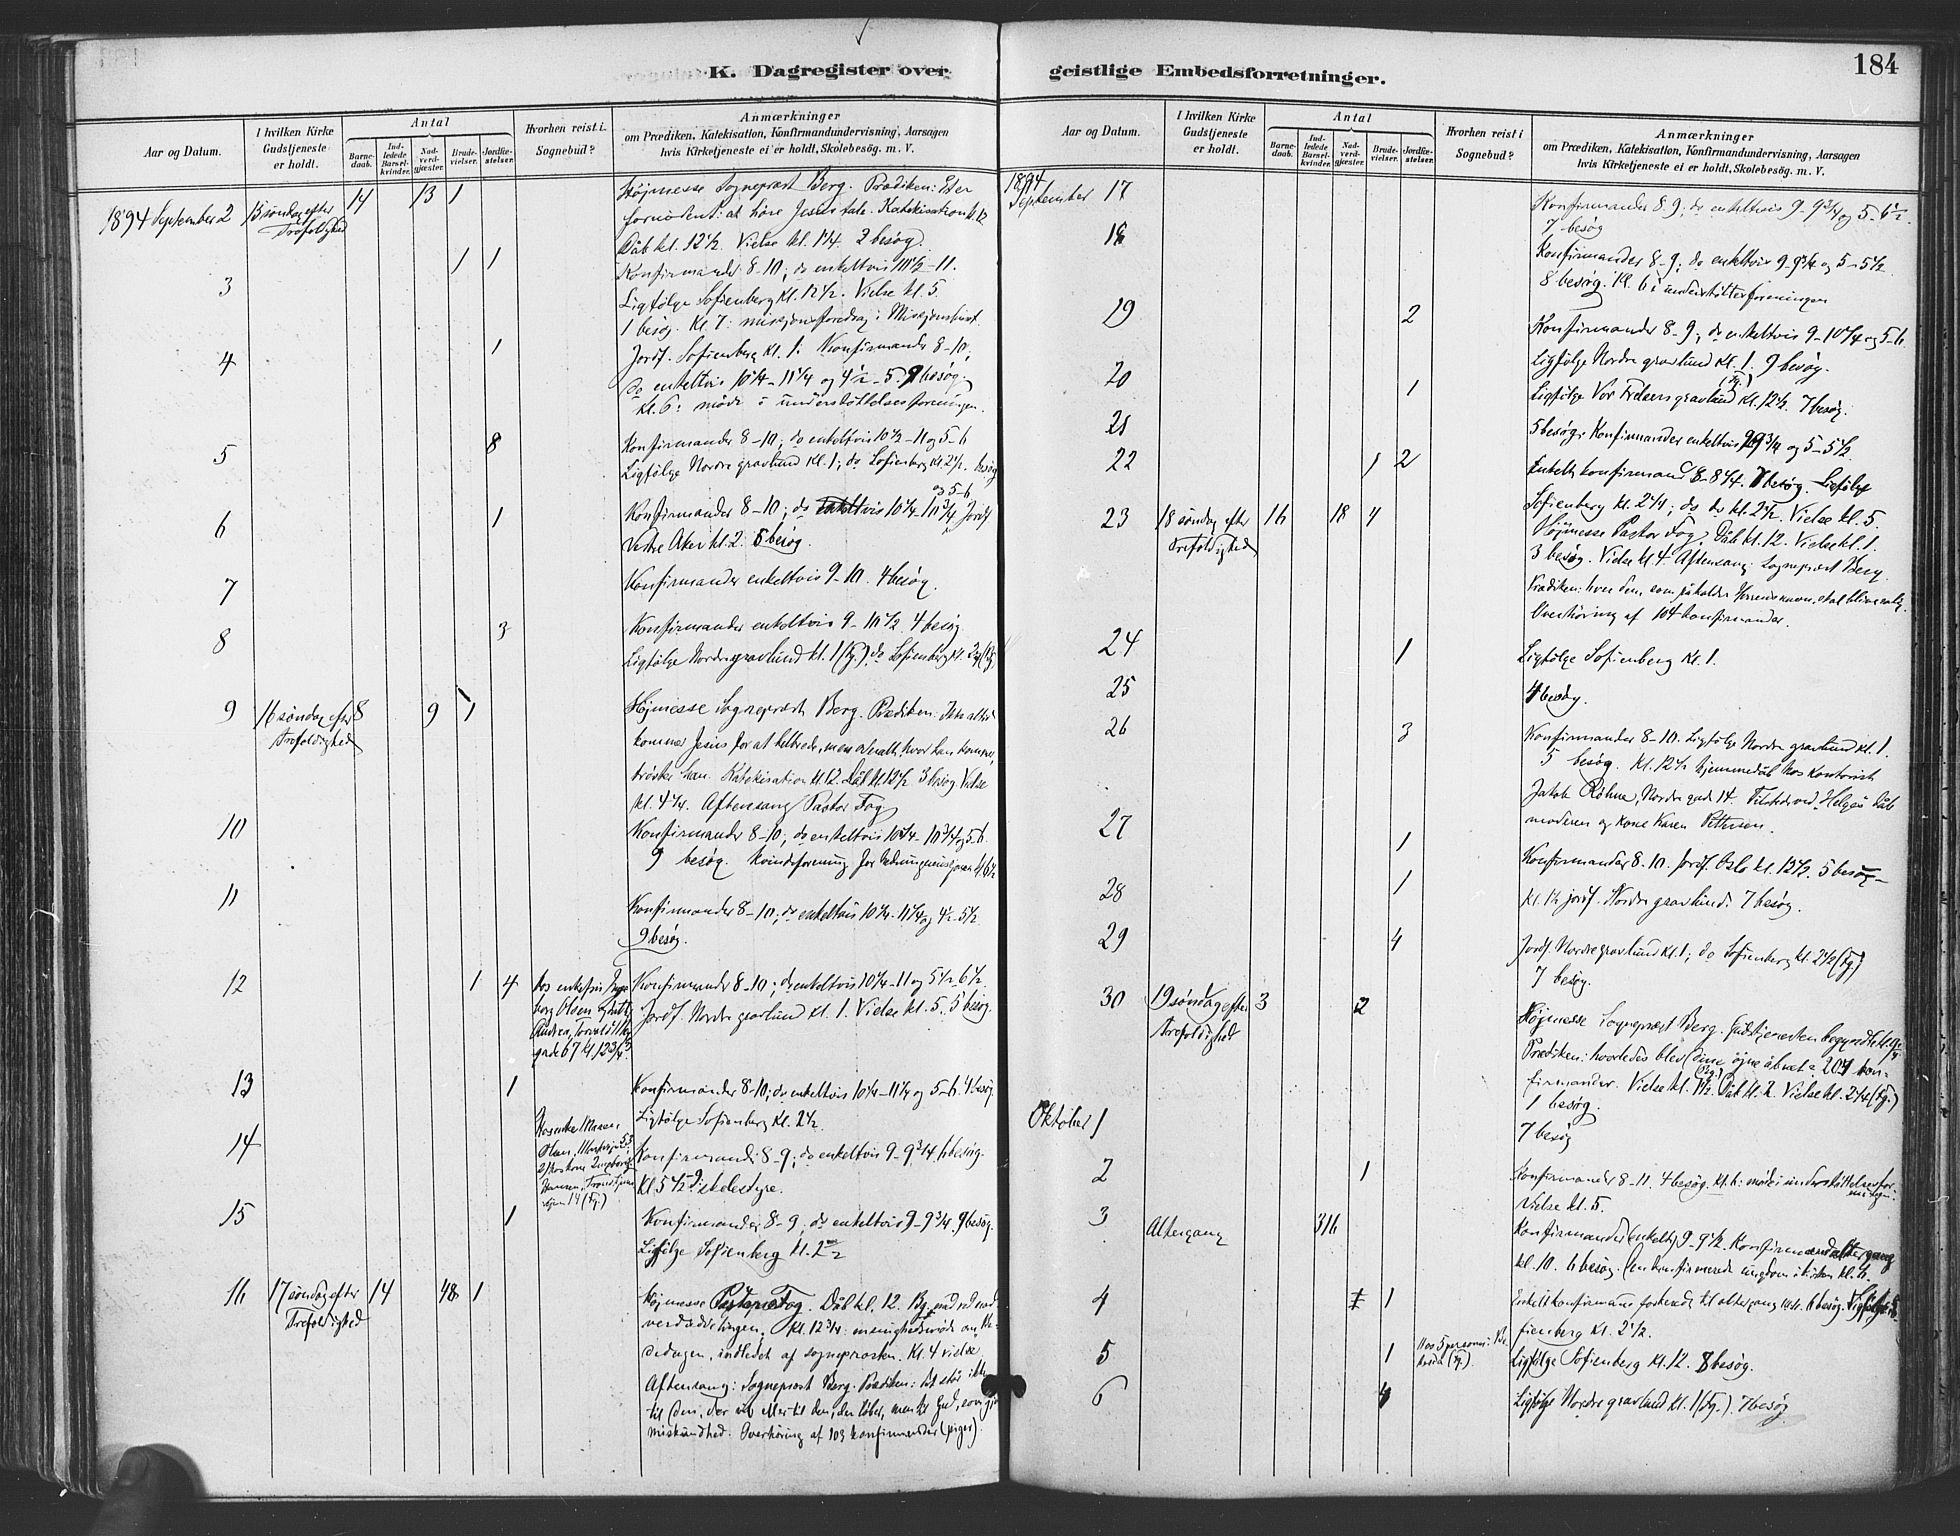 K. Dagregister over
Aar og Datum.
I hvilken Kirke
Gudstjeneste
er holdt.
Antal
Barne-
daab.
Ind-
ledede
Barsel-
kvinder.
Nad-
verd-
gjæster.
Brude-
vielser.
Jordfæ-
stelser.
Hvorhen reist i
Sognebud?
Anmærkninger
om Prædiken, Katekisation, Konfirmandundervisning, Aarsagen
hvis Kirketjeneste ei er holdt, Skolebesøg. m. V.
1894 September 2 13 14 1
Trefoldighed
Højmesse Sogneprest Berg. Prædiken:
at høre Jesus tale. Katekisation kl. 12.
Dåb kl. 12½. Vielse kl. 1¼. 2 besøg.
3 1 1 Konfirmander 8-10; do enkeltvis 10½-11.
Ligfølge Sofienberg kl. 12½. Vielse kl. 5.
1 besøg. Kl. 7: misjonsforedrag i
4 1 Jordf. Sofienberg kl. 1. Konfirmander 8-10;
do enkeltvis 10¼-11¼ og 4½-5. besøg.
Kl. 6: møde i understøttelsesforeningen.
5 8 Konfirmander 8-10; do enkeltvis 10½-11 og 5-6
Ligfølge Nordre gravlund kl. 1; do Sofienberg kl. 2½. besøg
og 5-6
6 1 Konfirmander 8-10; do enkeltvis 10¼-10¾ Jordf
Vestre Aker kl. 2. 5 besøg.
7 Konfirmander enkeltvis 9-10. 4 besøg.
8 3 Konfirmander enkeltvis 9-10½ 4 besøg.
Ligfølge Nordre gravlund kl. 1 (Fg.), do Sofienberg kl. (Fg.)
9 16 søndag efter 8 9 1
Trefoldighed
Højmesse Sogneprest Berg. Prædiken: Ikke altid
kommer Jesus for at helbrede, men overalt, hvor han kommer,
trøster han. Katekisation kl. 12. Dåb kl. 12½ 3 besøg. Vielse
kl. 4¼. Aftensang Pastor Fog
10 Konfirmander 8-10; do enkeltvis 10¼-10¾ og 5-6
9 besøg. Kvindeforening for
11 Konfirmander 8-10; do enkeltvis 10¼-11¼ og 4½-5½
9 besøg.
12 1 4 Hos enkefru
Olsen
Konfirmander 8-10; do enkeltvis 10¼-11 og 5½-6½.
Jordf. Nordre gravlund kl. 1. Vielse kl. 5. 5 besøg.
13 1 Konfirmander 8-10; do enkeltvis 10¼-11¼ og 5-6. 4 besøg.
Ligfølge Sofienberg kl. 2½.
14
14 (Fg.)
Konfirmander 8-9; do enkeltvis 9-9¾. 6 besøg.
Kl. 5½
15 1 Konfirmander 8-9; do enkeltvis 9-9¾. 9 besøg.
Ligfølge Sofienberg kl. 2½
16 17 søndag efter 14 48 1
Trefoldighed
Højmesse Pastor Fog. Dåb kl. 12. Bg. ved nad-
verdsuddelingen. Kl. 12¾: menighedsmøde om
indledet af sognepresten. Kl. 4 vielse.
Aftensang: Sogneprest Berg. Prædiken: Det står ikke
til den, der vil eller til den, der løber, men til Gud, som gjør
miskundhed. Overhøring af 103 konfirmander (piger).
geistlige Embedsforretninger.
184
Aar og Datum.
I hvilken Kirke
Gudstjeneste
er holdt.
Antal
Barne-
daab.
Ind-
ledede
Barsel-
kvinder.
Nad-
verd-
gjæster.
Brude-
vielser.
Jordfæ-
stelser.
Hvorhen reist i
Sognebud?
Anmærkninger
om Prædiken, Katekisation, Konfirmandundervisning, Aarsagen
hvis Kirketjeneste ei er holdt, Skolebesøg. m. V.
1894
September 17 Konfirmander 8-9; do enkeltvis 9-9¾ og 5-6½.
7 besøg
18 Konfirmander 8-9; do enkeltvis 9-9¾ og 5-5½.
8 besøg. Kl. 6 i understøttelsesforeningen
19 2 Konfirmander 8-9; do enkeltvis 9-10¼ og 5-6
Ligfølge Nordre gravlund kl. 1. 9 besøg.
20 1 Ligfølge Vor Frelsers gravlund (Fg.) kl. 12½. 7 besøg.
21 5 besøg. Konfirmander enkeltvis 9-9¾ og 5-5½
22 1 2 Enkelte konfirmander 8-8¼. besøg. Ligfølge
Sofienberg kl. 2¼; do do kl. 2½. Vielse kl. 5.
23 18 søndag efter 16 18 4
Trefoldighed
Højmesse Pastor Fog. Dåb kl. 12. Vielse kl. 1.
3 besøg. Vielse kl. 4. Aftensang: Sogneprest Berg.
Prædiken: hver den, som påkalder Herrens navn, skal blive salig.
Overhøring af 104 konfirmander.
24 1 Ligfølge Sofienberg kl. 1.
25 4 besøg.
26 3 Konfirmander 8-10. Ligfølge Nordre gravlund kl. 1.
5 besøg. Kl. 12½ hjemmedåb hos kontorist
Jakob Röhne, Nordre gade 14. Tilstede ved
moderen og kone Karen Pettersen.
27 1 Konfirmander 8-10. Jordf. Oslo kl. 12½. 5 besøg
28 1 Kl. 1½ jordf. Nordre gravlund. 7 besøg.
29 4 Jordf. Nordre gravlund kl. 1; do Sofienberg kl. 2½ (Fg.)
7 besøg.
30 19 søndag efter 3 2
Trefoldighed
Højmesse Sogneprest Berg. Gudstjenesten begyndte kl.
Prædiken: hvorledes blev dine øjne åbnet? 204 kon-
firmander. Vielse kl. 1½. (Fg.) Dåb kl. 2. Vielse kl. 2¼ (Fg.)
1 besøg.
Oktober 1 7 besøg
2 1 Konfirmander 8-11. 4 besøg. Kl. 6: møde i understøttelsesfor-
eningen.
Vielse kl. 5.
3 Altergang 316 Konfirmander (enkelte) 9-9½. Konfirmandaltergang
kl. 10. 6 besøg. Den konfirmerede ungdom i kirken kl. 6.
4 1 Enkelt konfirmand til altergang besøg. Ligfølge So-
fienberg kl. 2½.
5 1 Hos 5 personer: Be-
(Fg.)
Ligfølge Sofienberg kl. 12. 8 besøg.
6 4 Ligfølge Nordre gravlund kl. 1 (Fg.). 7 besøg